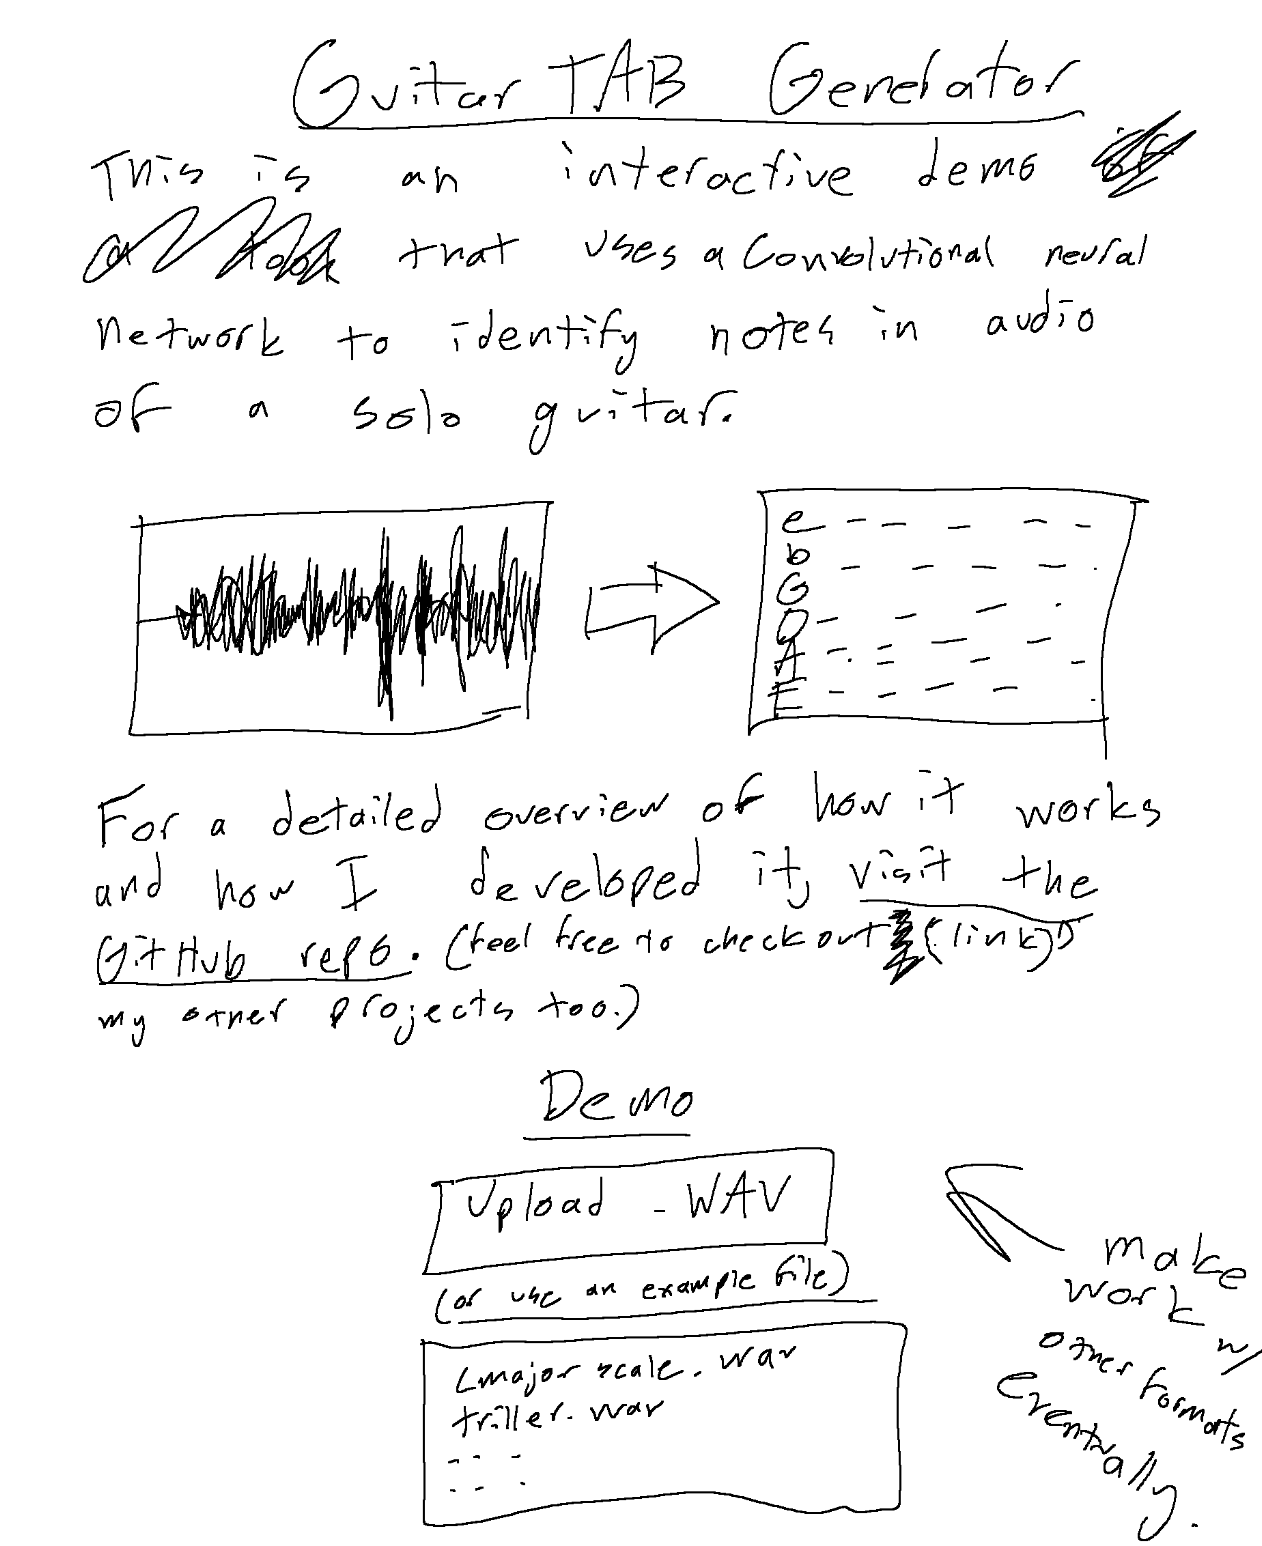 Guitar TAB Generator
This is an interactive demo
that uses a Convolutional neural
network to identify notes in audio
of a solo guitar.
e
b
G
D
A
E
For a detailed overview of how it works
and how I developed it, visit the
GitHub repo. (feel free to check out (link)
my other projects too.)
Demo
Upload .WAV
(or use an example file)
Cmajor scale.wav
triller.wav
make
work w/
other formats
eventually.